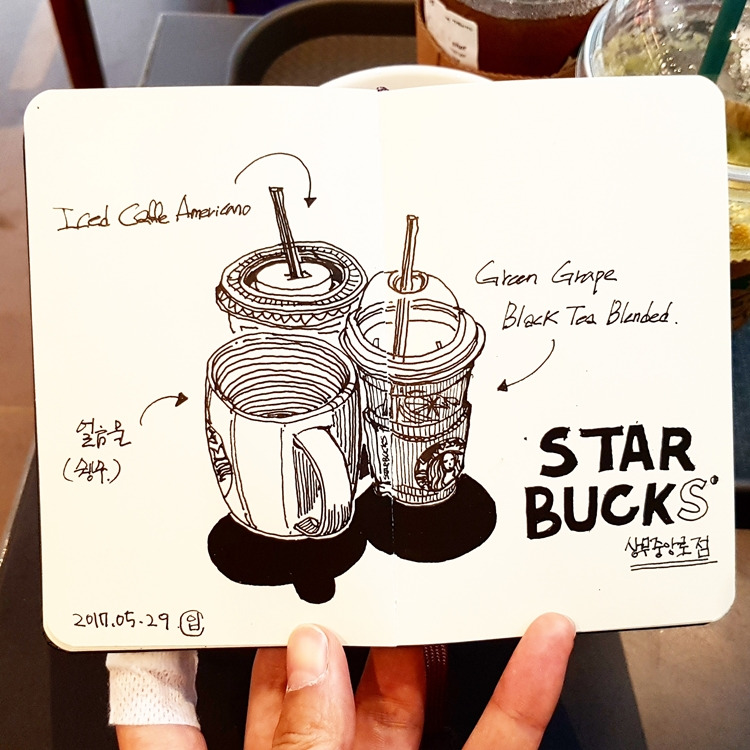 Iced Caffe Americano
Green Grape
Black Tea Blended.
얼음물
STARBUCKS
STAR
BUCKS
상무중앙로점
2017.05.29